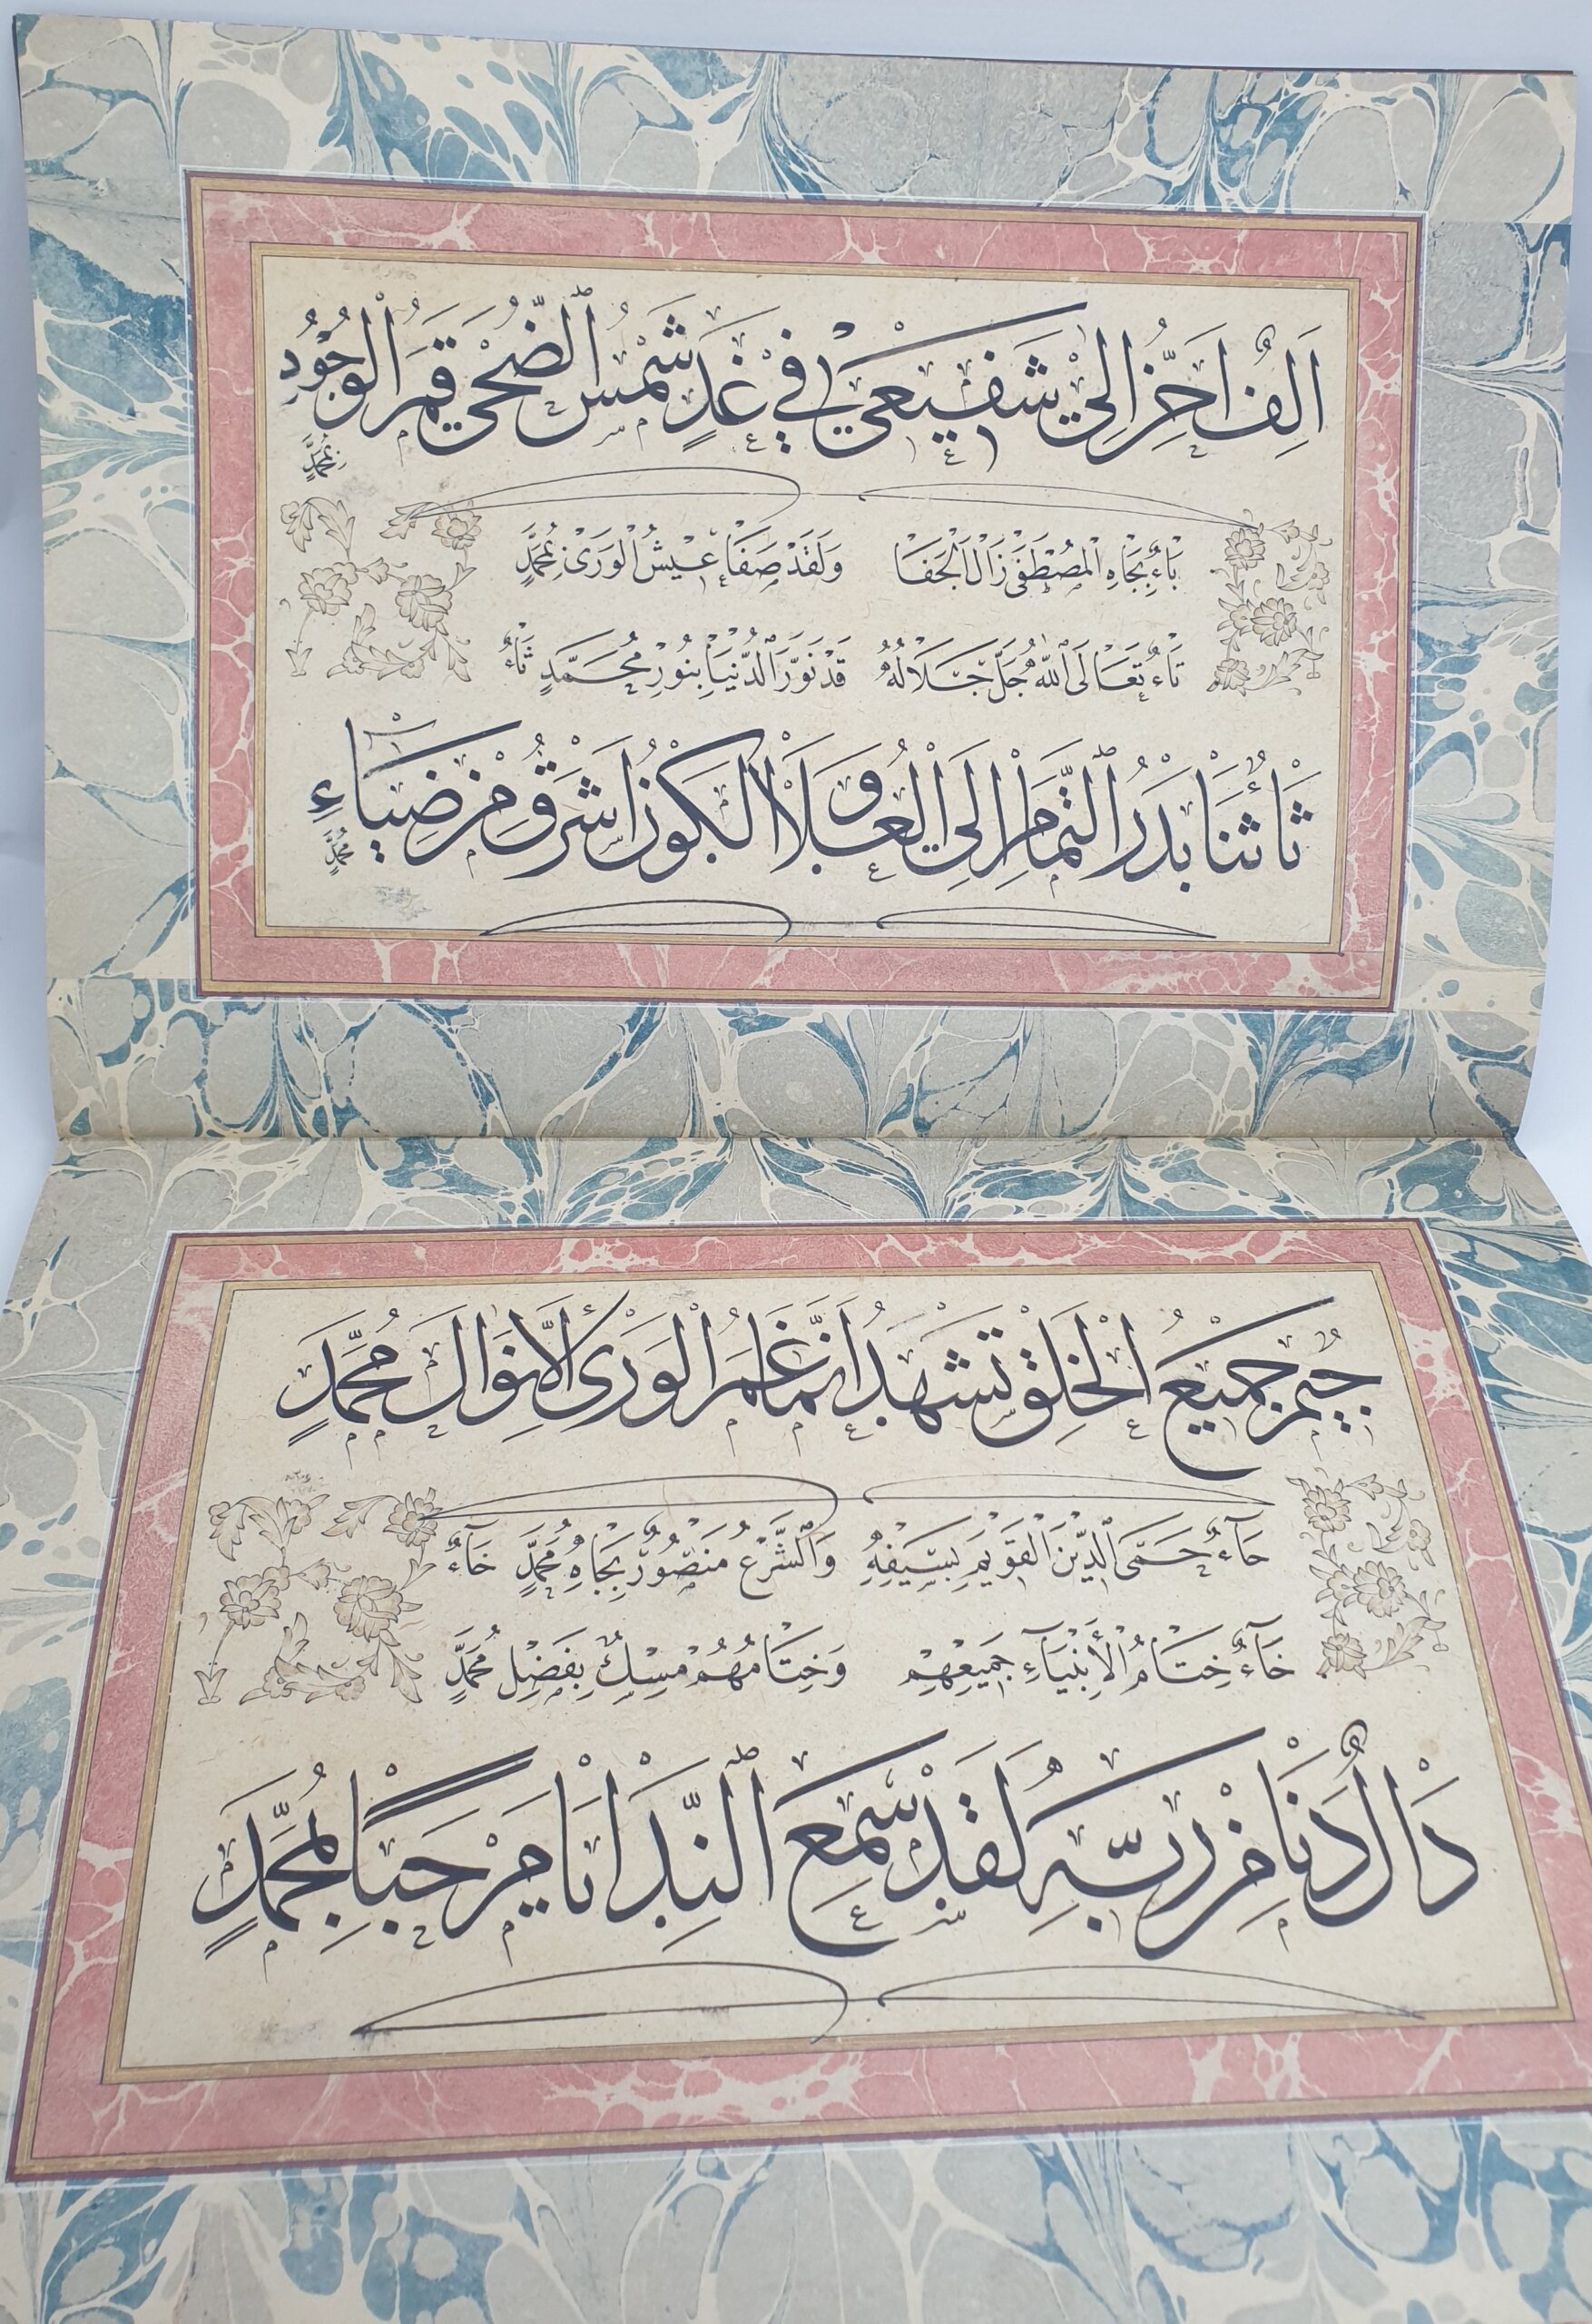 اَلِفٌ اَحِنُّ اِلٰى شَفِيعِي فِي غَدٍ شَمْسِ الضُّحٰى قَمَرِ الْوُجُودِ
مُحَمَّدِ
بَاءٌ بِجَاهِ الْمُصْطَفٰى زَالَ الْجَفَا وَلَقَدْ صَفَا عَيْشُ الْوَرٰى بِمُحَمَّدِ
تَاءٌ تَعَالَى اللّٰهُ جَلَّ جَلَالُهُ قَدْ نَوَّرَ الدُّنْيَا بِنُورِ مُحَمَّدٍ ثَاءٌ
ثَا ثَنَا بَدْرُ التَّمَامِ اِلَى الْعُلَا وَالْكَوْنُ اَشْرَقَ مِنْ ضِيَاءِ
مُحَمَّدِ
جِيمٌ جَمِيعُ الْخَلْقِ تَشْهَدُ اَنَّمَا غَمَرَ الْوَرٰى اِلَّا نَوَالُ مُحَمَّدٍ
حَاءٌ حَمَى الدِّينَ الْقَوِيمَ بِسَيْفِهِ وَالشَّرْعُ مَنْصُورٌ بِجَاهِ مُحَمَّدٍ خَاءٌ
خَاءٌ خِتَامُ الْأَنْبِيَاءِ جَمِيعِهِمْ وَخِتَامُهُمْ مِسْكٌ بِفَضْلِ مُحَمَّدٍ
دَالٌ دَنَا مِنْ رَبِّهِ لَقَدْ سَمِعَ النِّدَا يَا مَرْحَبًا بِمُحَمَّدٍ